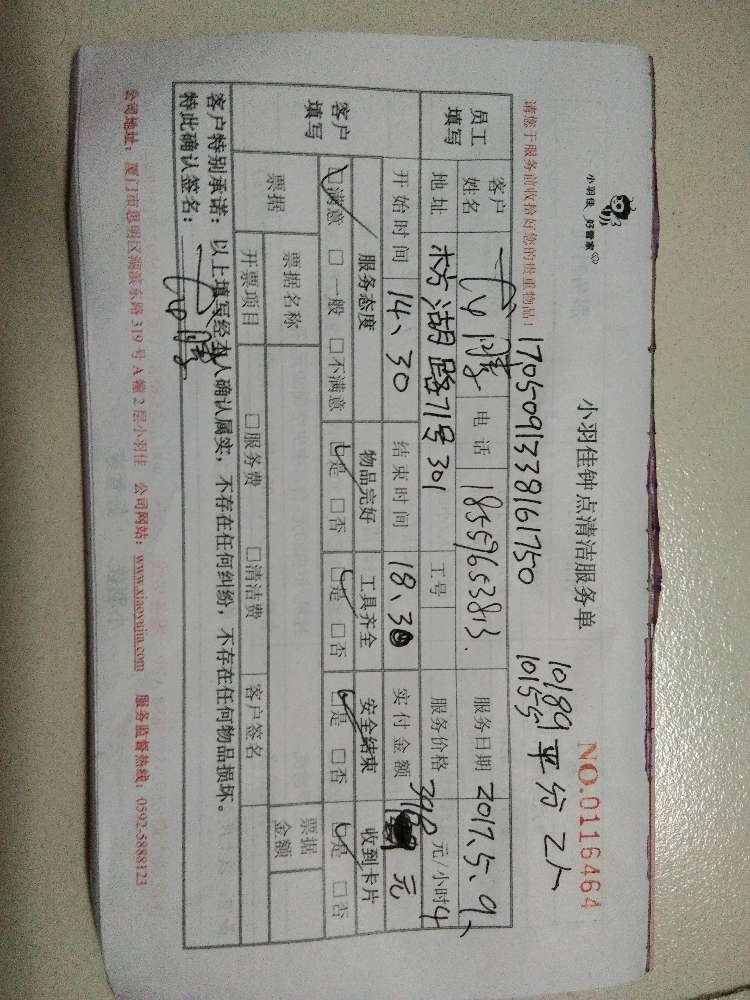 小羽佳 好管家
小羽佳钟点清洁服务单
NO.0116464
请您于服务前收拾好您的贵重物品！
1705091338161750
10189
10155
平分 2人
员工填写
客户姓名
腾
电话
18559653813.
服务日期
2017.5.9.
地址
坊湖路71号301
工号
服务价格
元/小时
4
开始时间
14、30
结束时间
18、30
实付金额
元
客户填写
服务态度
物品完好
工具齐全
安全结束
收到卡片
□满意 □一般 □不满意
□是 □否
□是 □否
□是 □否
□是 □否
票据
票据名称
票据金额
开票项目
□服务费
□清洁费
客户签名
客户特别承诺：以上填写经本人确认属实，不存在任何纠纷，不存在任何物品损坏。
特此确认签名：
腾
公司地址：厦门市思明区湖滨东路319号A幢2层小羽佳 公司网站：www.xiaoyujia.com 服务监督热线：0592-5888123